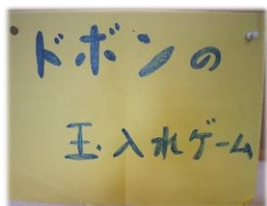 ドボンの
玉入れゲーム